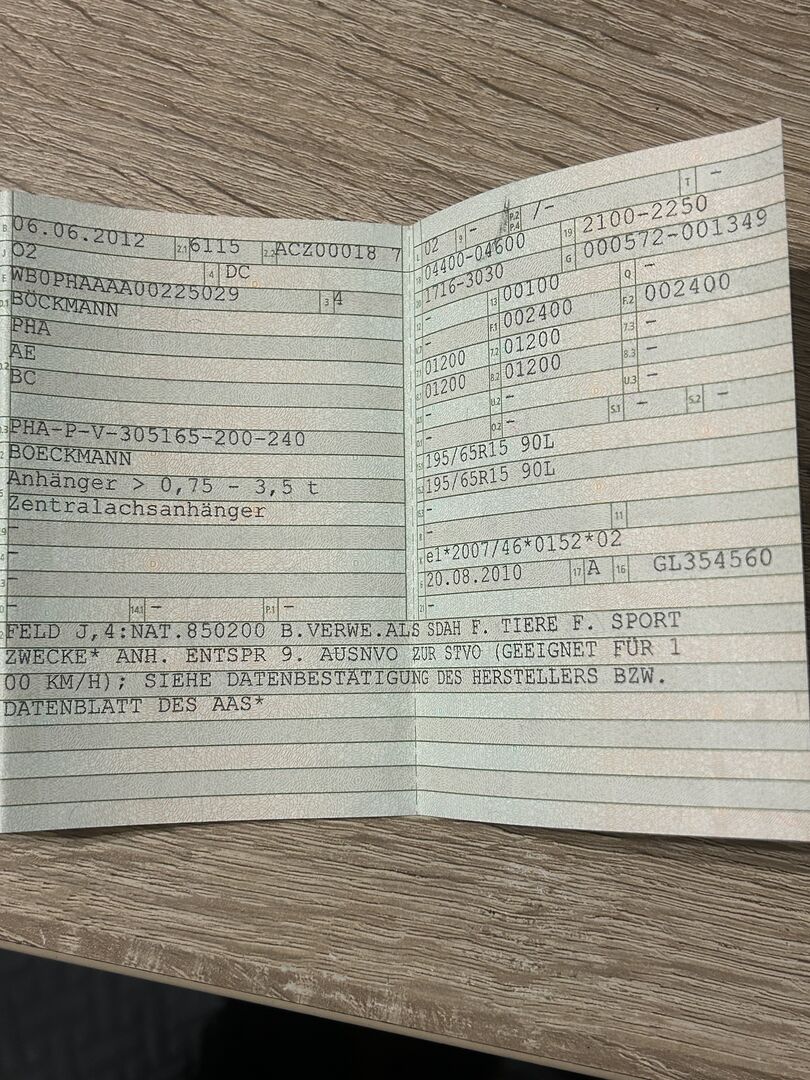 B 06.06.2012 2.1 6115 2.2 ACZ00018 7
J O2 4 DC
E WB0PHAAAA00225029 3 4
D.1 BÖCKMANN
PHA
D.2 AE
BC
D.3 PHA-P-V-305165-200-240
2 BOECKMANN
5 Anhänger > 0,75 - 3,5 t
Zentralachsanhänger
-
-
-
- 14.1 - P.1 -
L 02 9 - P.2 P.4 /- T -
18 04400-04600 19 2100-2250
20 1716-3030 G 000572-001349
12 - 13 00100 Q -
- F.1 002400 F.2 002400
7.1 01200 7.2 01200 7.3 -
8.1 01200 8.2 01200 8.3 -
- U.2 - U.3 -
- O.2 - S.1 - S.2 -
15.1 195/65R15 90L
15.2 195/65R15 90L
-
- 11
K e1*2007/46*0152*02
6 20.08.2010 17 A 16 GL354560
21 -
FELD J,4:NAT.850200 B.VERWE.ALS SDAH F. TIERE F. SPORT
ZWECKE* ANH. ENTSPR 9. AUSNVO ZUR STVO (GEEIGNET FÜR 1
00 KM/H); SIEHE DATENBESTÄTIGUNG DES HERSTELLERS BZW.
DATENBLATT DES AAS*